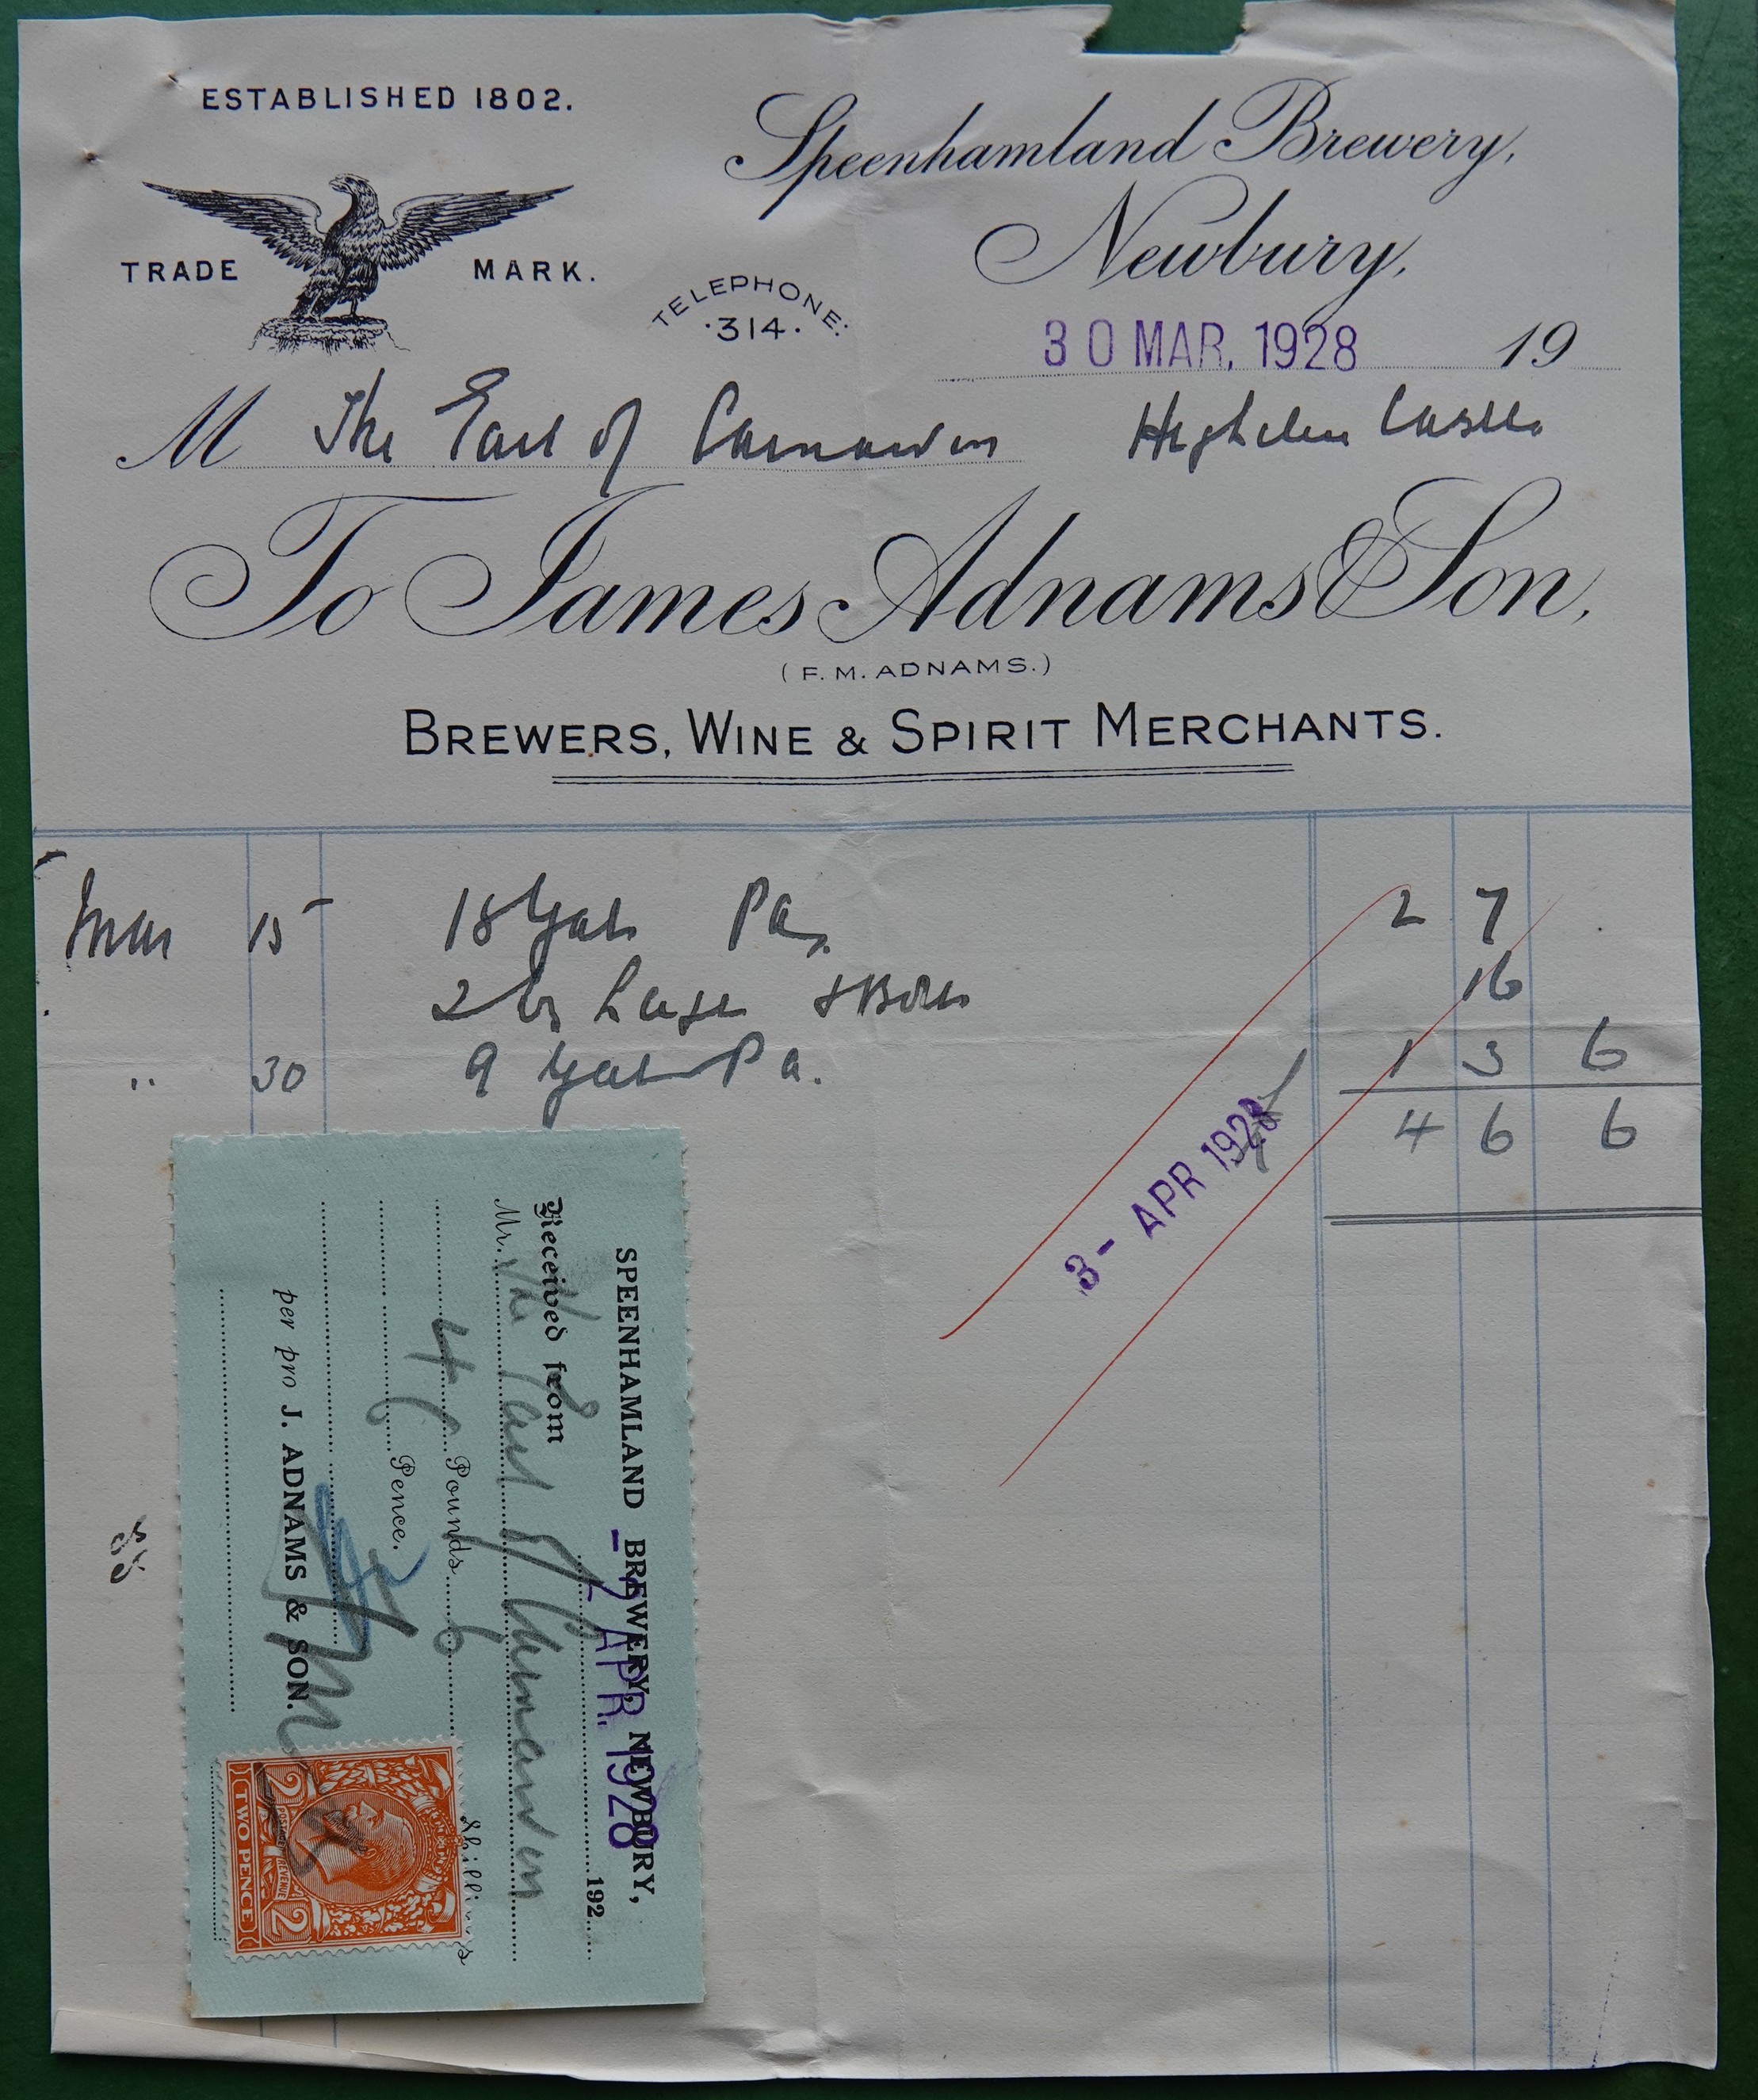 ESTABLISHED 1802.
TRADE MARK.
TELEPHONE:
·314·
Speenhamland Brewery,
Newbury,
30 MAR. 1928 19
M The Earl of Carnarvon Highclere Castle
To James Adnams & Son,
(F. M. ADNAMS.)
BREWERS, WINE & SPIRIT MERCHANTS.
Mar 15 18 Gals Pa. 2 7
2 Lager 16
" 30 9 Gals Pa. 1 3 6
4 6 6
3 - APR 1928
SPEENHAMLAND BREWERY, NEWBURY,
- 2 APR. 1928 192
Received from
Mr. The Earl of Carnarvon
4 Pounds 6 Shillings
6 Pence.
per pro J. ADNAMS & SON.
POSTAGE REVENUE
2 2
TWO PENCE